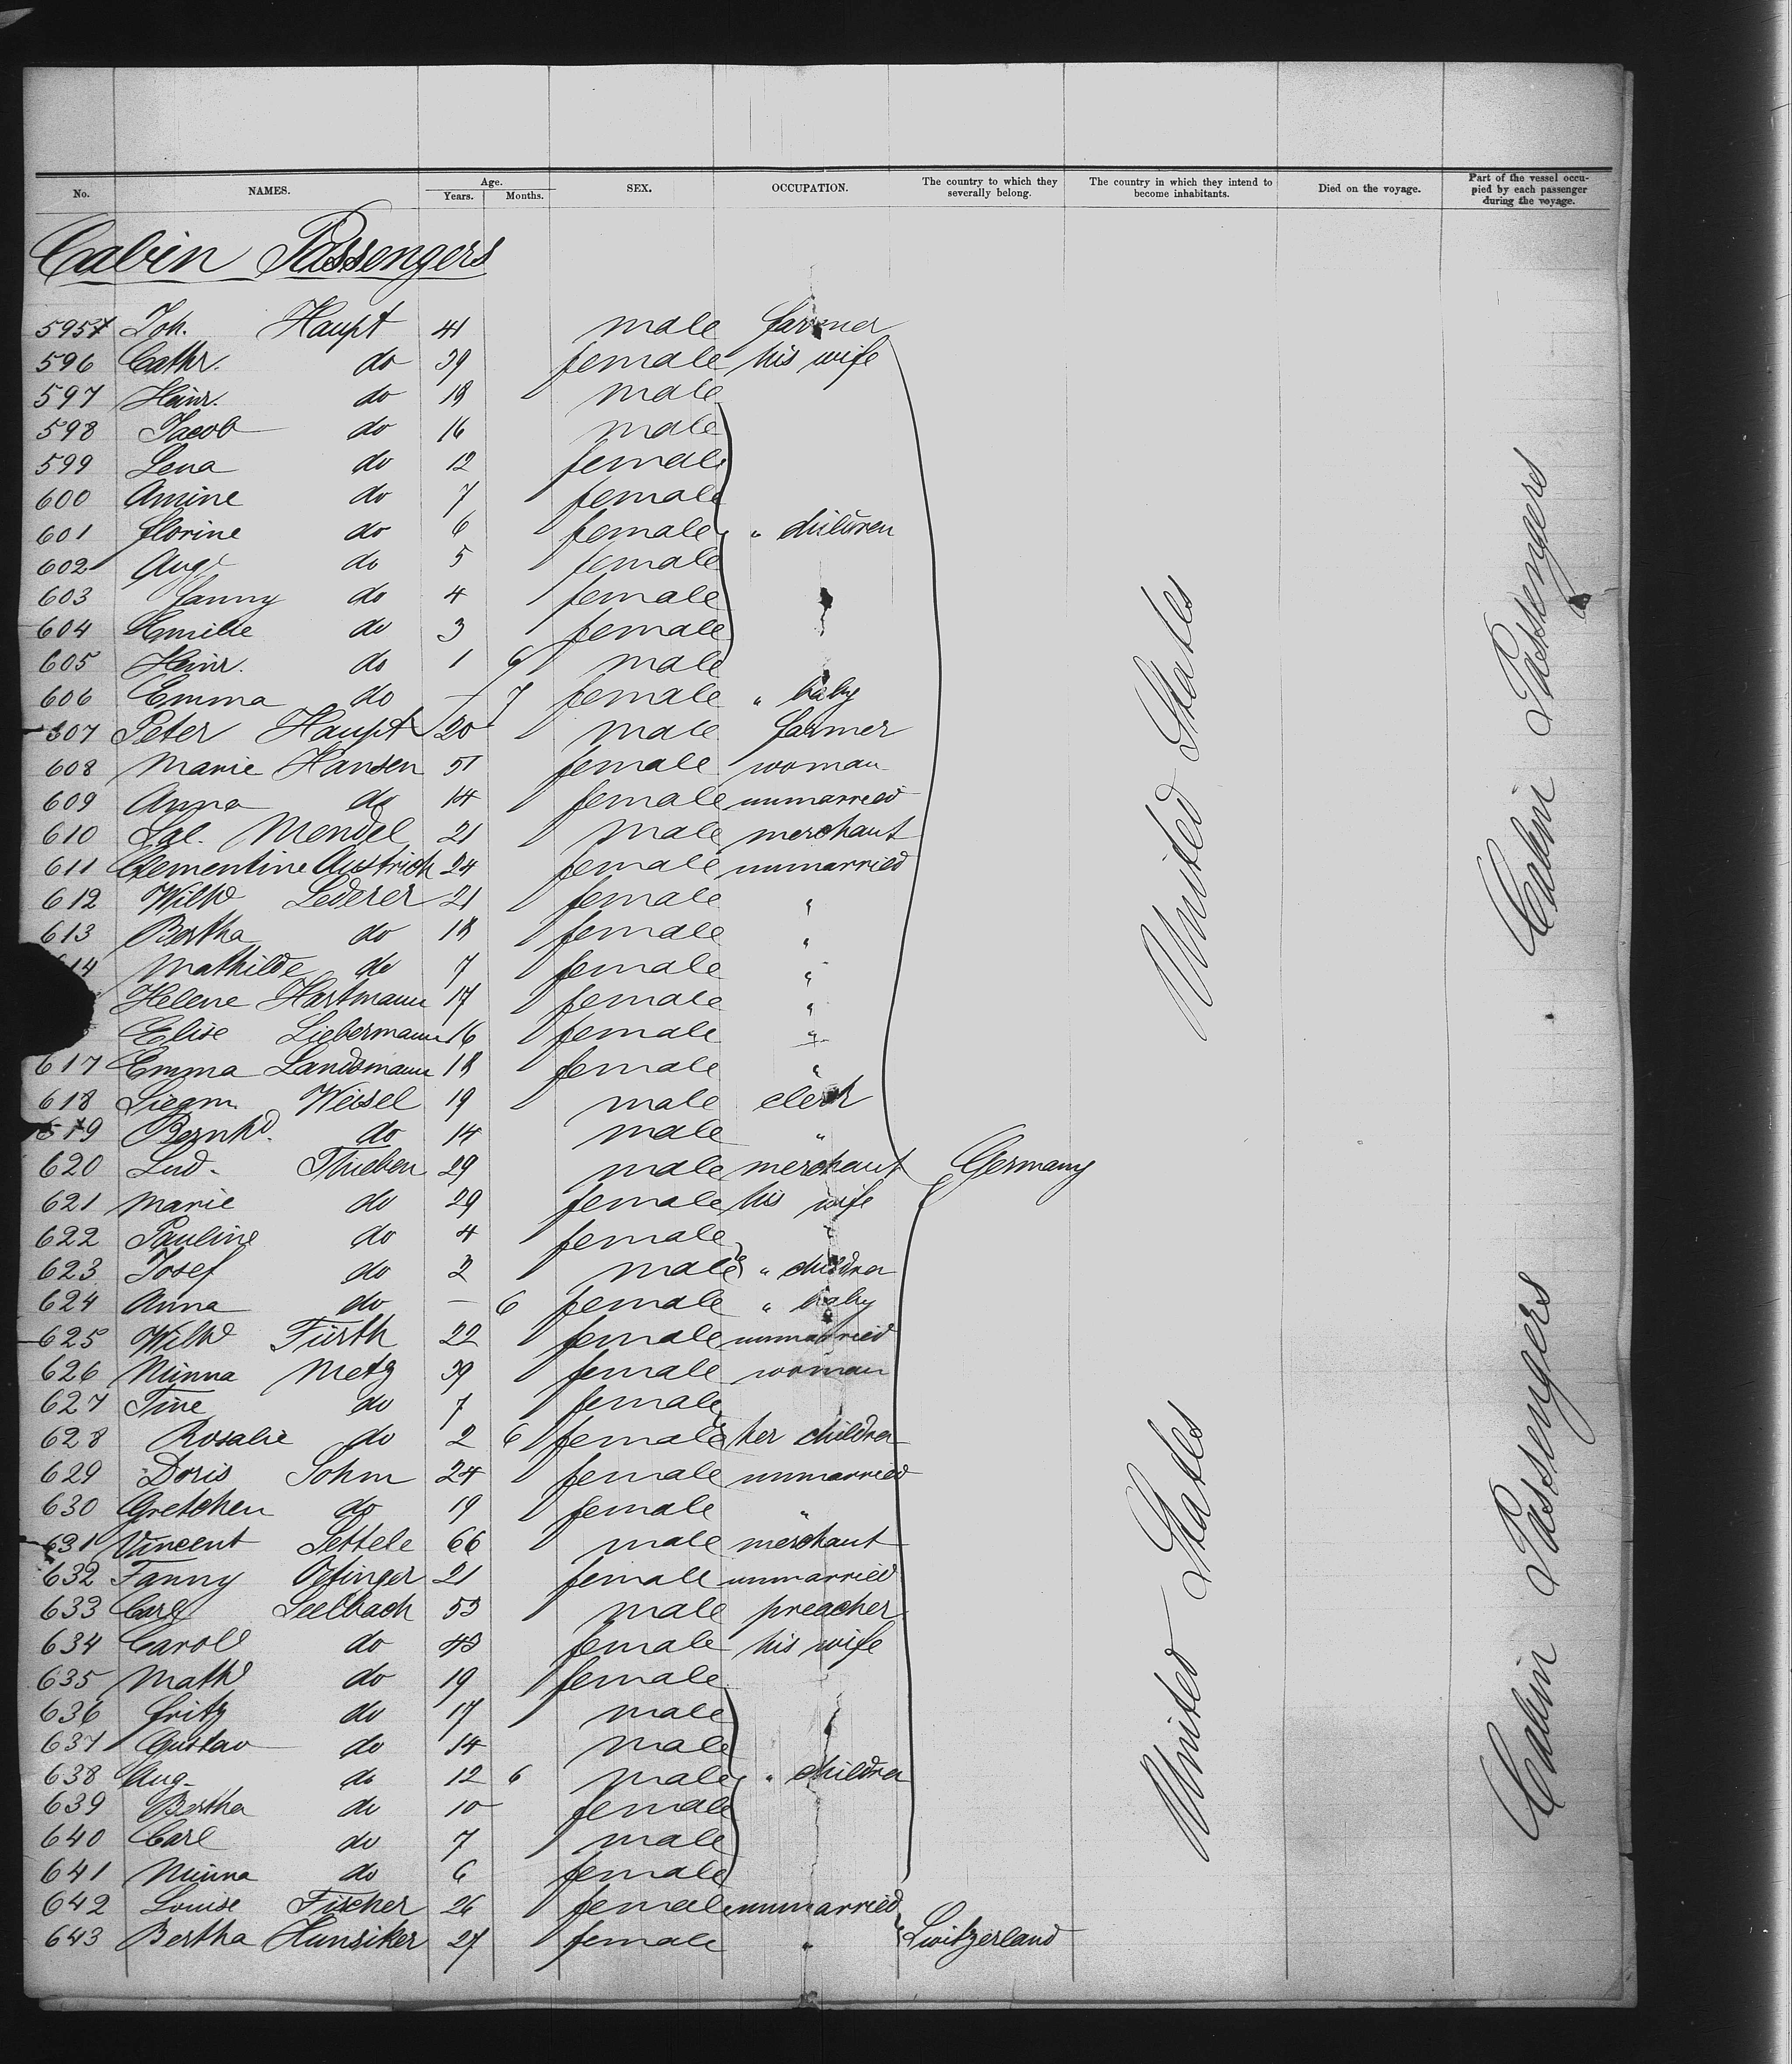 No. NAMES. Age. Years. Months. SEX. OCCUPATION. The country to which they severally belong. The country in which they intend to become inhabitants. Died on the voyage. Part of the vessel occupied by each passenger during the voyage.
Cabin Passengers
595 Joh. Haupt 41 male farmer
596 Cathr. do 39 female his wife
597 Heinr. do 18 male
598 Jacob do 16 male
599 Lena do 12 female
600 Amine do 7 female
601 florine do 6 female " children
602 Aug. do 5 female
603 fanny do 4 female
604 Emilie do 3 female
605 Heinr. do 1 6 male
606 Emma do — 7 female " baby
607 Peter Haupt 20 male farmer
608 Marie Hansen 51 female woman
609 Anna do 14 female unmarried
610 Sal. Mendel 21 male merchant
611 Clementine Austrich 24 female unmarried
612 Wilhd Lederer 21 female "
613 Bertha do 18 female "
614 Mathilde do 7 female "
Helene Hartmann 17 female "
Elise Liebermann 16 female "
617 Emma Landsmann 18 female "
618 Siegm. Weisel 19 male clerk
619 Bernhd. do 14 male "
620 Lud. Thieben 29 male merchant Germany
621 Marie do 29 female his wife
622 Pauline do 4 female
623 Josef do 2 male " children
624 Anna do — 6 female " baby
625 Wilhd Fürth 22 female unmarried
626 Minna Metz 39 female woman
627 Tine do 7 female
628 Rosalie do 2 6 female her children
629 Doris Sohm 24 female unmarried
630 Gretchen do 19 female "
631 Vincent Settele 66 male merchant
632 Fanny Ottinger 21 female unmarried
633 Carl Seelbach 53 male preacher
634 Carold do 43 female his wife
635 Mathd do 19 female
636 fritz do 17 male
637 Gustav do 14 male
638 Aug. do 12 6 male " children
639 Bertha do 10 female
640 Carl do 7 male
641 Minna do 6 female
642 Louise Fischer 26 female unmarried
643 Bertha Hunsiker 27 female " Switzerland
United States
United States
Cabin Passengers
Cabin Passengers